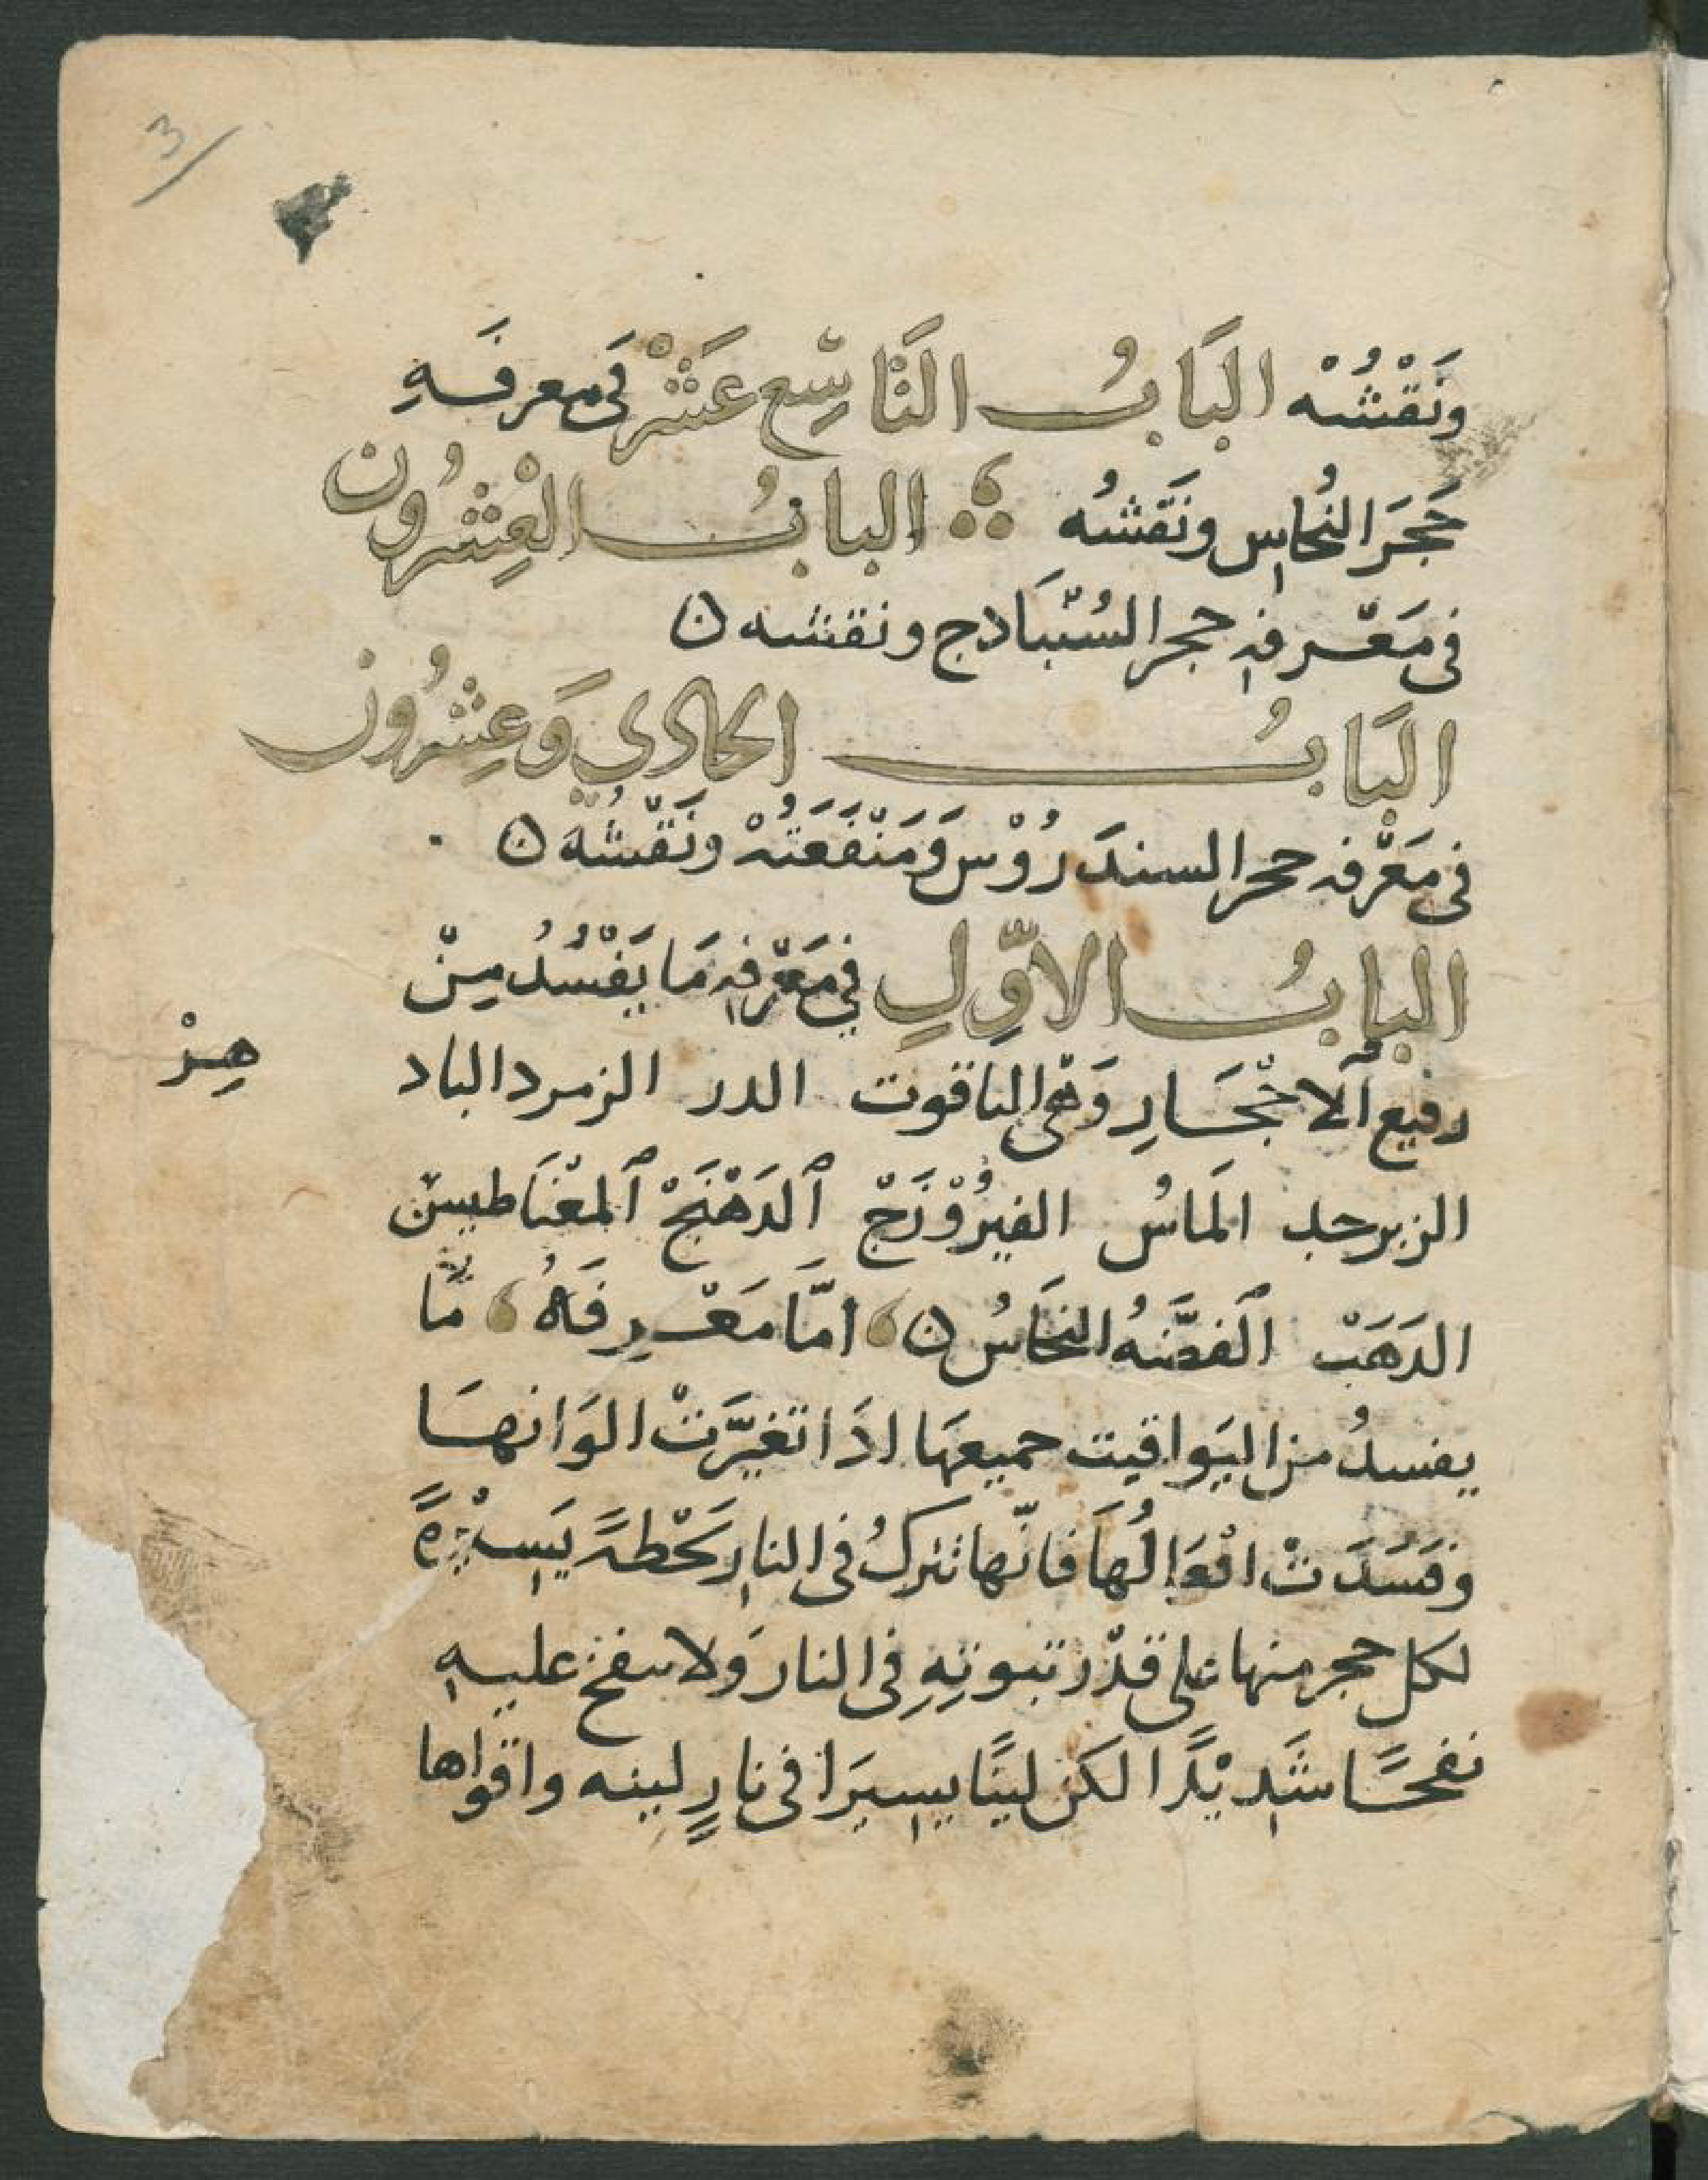 3
وَنَقْشُهْ البَابُ التَاسِع عَشَرْ فَى معرفَـهِ
حَجَرَ النُحاسِ ونَقَشُه البابُ العِشرُون
فى مَعْـرفهِ حجر السُنْبَادج ونقشه ن
البَابُ الحادي وَعِشرُون
فى مَعْرفه حجر السندَرُوْس وَمَنْفَعَتُهْ ونَقْشُهَ ن
البابُ الاوّلِ في مَعْرفهِ مَا يَفْسُدُ مِنْ
رفيع آلاحْجَـارِ وَهْىَ الياقوت الدر الزمرد الباد هِـزْ
الزبرجد المَاسُ الفيرُوْزَجْ ٱلدَهْنَجْ ٱلمغْنَاطيس
الدَهَبْ ٱلفضَّهُ النحَاسُ ن امَّا مَعْـرِفَهُ مَّا
يفسدُ من اليَواقيت جميعهَا ادَا تغيَّرَتْ الوَانهـا
وَفسَدَتْ افْعَالُهَا فانّها تتركُ فى النارِ لَحْظهً يَسِيْرَةً
لكل حجر منها على قدْر تبوتهِ فى النار وَلا ينفخ عليـهِ
نفخًـا شَدِيْدًا لكن ليّنًا يسِيَرَا فى نارٍ لينه واقواها